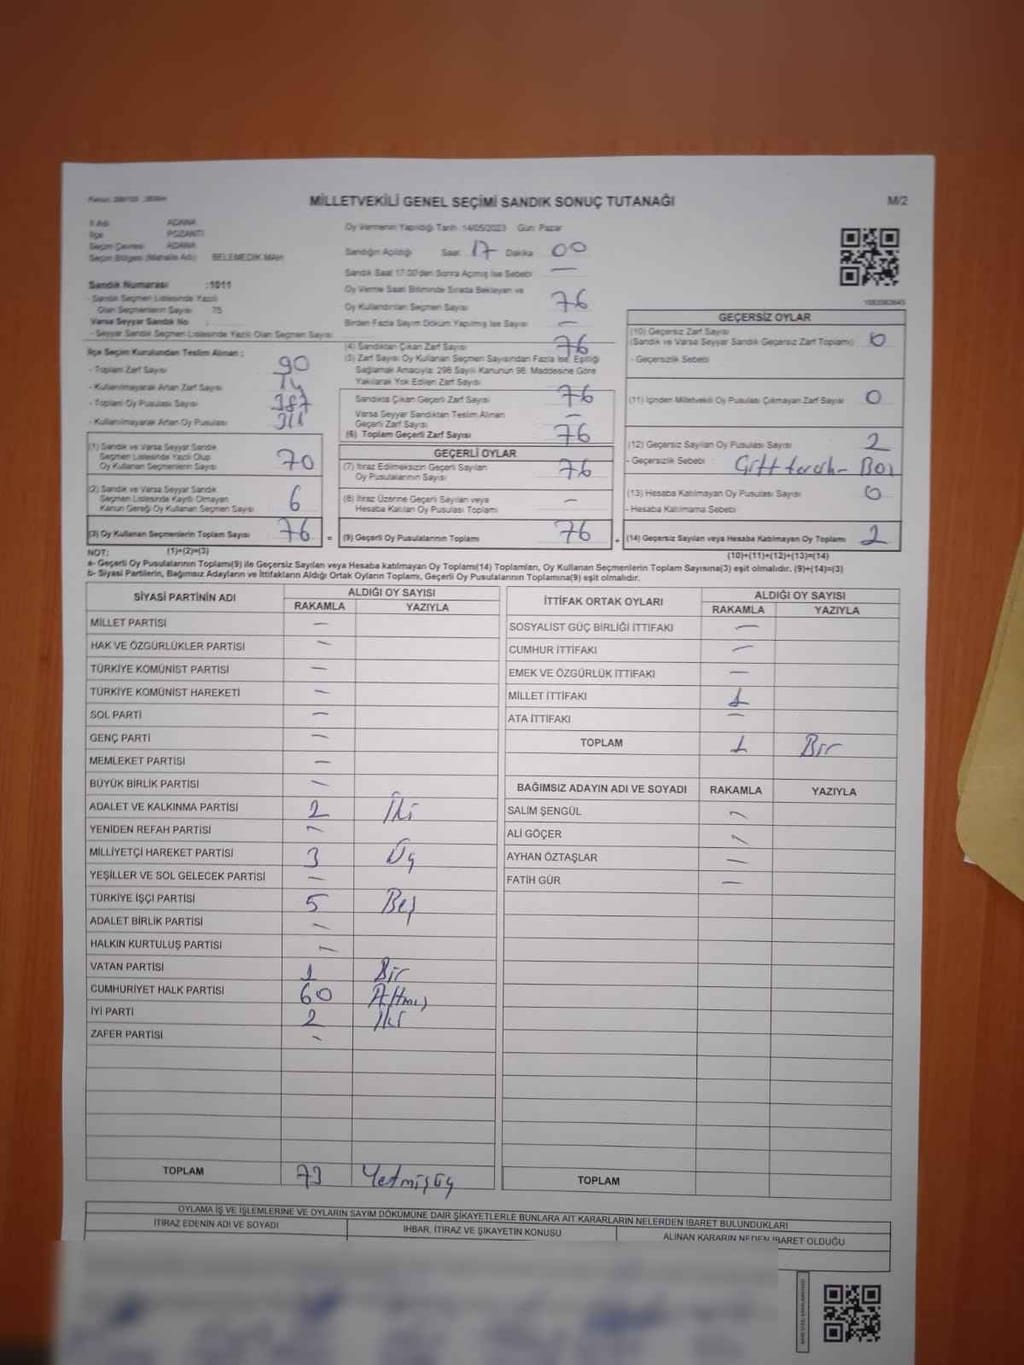 MİLLETVEKİLİ GENEL SEÇİMİ SANDIK SONUÇ TUTANAĞI
M/2
İl Adı ADANA
İlçe POZANTI
Seçim Çevresi ADANA
Seçim Bölgesi (Mahalle Adı) BELEMEDİK MAH
Sandık Numarası :1011
- Sandık Seçmen Listesinde Yazılı
Olan Seçmenlerin Sayısı 75
Varsa Seyyar Sandık No
- Seyyar Sandık Seçmen Listesinde Yazılı Olan Seçmen Sayısı
İlçe Seçim Kurulundan Teslim Alınan :
- Toplam Zarf Sayısı 90
- Kullanılmayarak Artan Zarf Sayısı 14
- Toplam Oy Pusulası Sayısı 387
- Kullanılmayarak Artan Oy Pusulası 311
(1) Sandık ve Varsa Seyyar Sandık
Seçmen Listesinde Yazılı Olup
Oy Kullanan Seçmenlerin Sayısı 70
(2) Sandık ve Varsa Seyyar Sandık
Seçmen Listesinde Kayıtlı Olmayan
Kanun Gereği Oy Kullanan Seçmen Sayısı 6
(3) Oy Kullanan Seçmenlerin Toplam Sayısı 76
(1)+(2)=(3)
Oy Vermenin Yapıldığı Tarih 14/05/2023 Gün Pazar
Sandığın Açıldığı Saat 17 Dakika 00
Sandık Saat 17:00'den Sonra Açılmış İse Sebebi —
Oy Verme Saat Bitiminde Sırada Bekleyen ve
Oy Kullandırılan Seçmen Sayısı 76
Birden Fazla Sayım Döküm Yapılmış İse Sayısı —
(4) Sandıktan Çıkan Zarf Sayısı 76
(5) Zarf Sayısı Oy Kullanan Seçmen Sayısından Fazla İse, Eşitliği
Sağlamak Amacıyla; 298 Sayılı Kanunun 98. Maddesine Göre
Yakılarak Yok Edilen Zarf Sayısı
Sandıkta Çıkan Geçerli Zarf Sayısı 76
Varsa Seyyar Sandıktan Teslim Alınan
Geçerli Zarf Sayısı —
(6) Toplam Geçerli Zarf Sayısı 76
GEÇERLİ OYLAR
(7) İtiraz Edilmeksizin Geçerli Sayılan
Oy Pusulalarının Sayısı 76
(8) İtiraz Üzerine Geçerli Sayılan veya
Hesaba Katılan Oy Pusulası Toplamı —
= (9) Geçerli Oy Pusulalarının Toplamı 76
GEÇERSİZ OYLAR
(10) Geçersiz Zarf Sayısı
(Sandık ve Varsa Seyyar Sandık Geçersiz Zarf Toplamı) 0
- Geçersizlik Sebebi
(11) İçinden Milletvekili Oy Pusulası Çıkmayan Zarf Sayısı 0
(12) Geçersiz Sayılan Oy Pusulası Sayısı 2
- Geçersizlik Sebebi :
(13) Hesaba Katılmayan Oy Pusulası Sayısı 0
- Hesaba Katılmama Sebebi
+ (14) Geçersiz Sayılan veya Hesaba Katılmayan Oy Toplamı 2
(10)+(11)+(12)+(13)=(14)
NOT:
a- Geçerli Oy Pusulalarının Toplamı(9) ile Geçersiz Sayılan veya Hesaba Katılmayan Oy Toplamı(14) Toplamları, Oy Kullanan Seçmenlerin Toplam Sayısına(3) eşit olmalıdır. (9)+(14)=(3)
b- Siyasi Partilerin, Bağımsız Adayların ve İttifakların Aldığı Ortak Oyların Toplamı, Geçerli Oy Pusulalarının Toplamına(9) eşit olmalıdır.
SİYASİ PARTİNİN ADI ALDIĞI OY SAYISI
RAKAMLA YAZIYLA
MİLLET PARTİSİ —
HAK VE ÖZGÜRLÜKLER PARTİSİ —
TÜRKİYE KOMÜNİST PARTİSİ —
TÜRKİYE KOMÜNİST HAREKETİ —
SOL PARTİ —
GENÇ PARTİ —
MEMLEKET PARTİSİ —
BÜYÜK BİRLİK PARTİSİ —
ADALET VE KALKINMA PARTİSİ 2 İki
YENİDEN REFAH PARTİSİ —
MİLLİYETÇİ HAREKET PARTİSİ 3 Üç
YEŞİLLER VE SOL GELECEK PARTİSİ —
TÜRKİYE İŞÇİ PARTİSİ 5 Beş
ADALET BİRLİK PARTİSİ —
HALKIN KURTULUŞ PARTİSİ —
VATAN PARTİSİ 1 Bir
CUMHURİYET HALK PARTİSİ 60 Altmış
İYİ PARTİ 2 İki
ZAFER PARTİSİ —
TOPLAM 73 Yetmişüç
İTTİFAK ORTAK OYLARI ALDIĞI OY SAYISI
RAKAMLA YAZIYLA
SOSYALİST GÜÇ BİRLİĞİ İTTİFAKI —
CUMHUR İTTİFAKI —
EMEK VE ÖZGÜRLÜK İTTİFAKI —
MİLLET İTTİFAKI 1
ATA İTTİFAKI —
TOPLAM 1 Bir
BAĞIMSIZ ADAYIN ADI VE SOYADI RAKAMLA YAZIYLA
SALİM ŞENGÜL —
ALİ GÖÇER —
AYHAN ÖZTAŞLAR —
FATİH GÜR —
TOPLAM
OYLAMA İŞ VE İŞLEMLERİNE VE OYLARIN SAYIM DÖKÜMÜNE DAİR ŞİKAYETLERLE BUNLARA AİT KARARLARIN NELERDEN İBARET BULUNDUKLARI
İTİRAZ EDENİN ADI VE SOYADI İHBAR, İTİRAZ VE ŞİKAYETİN KONUSU ALINAN KARARIN NEDEN İBARET OLDUĞU